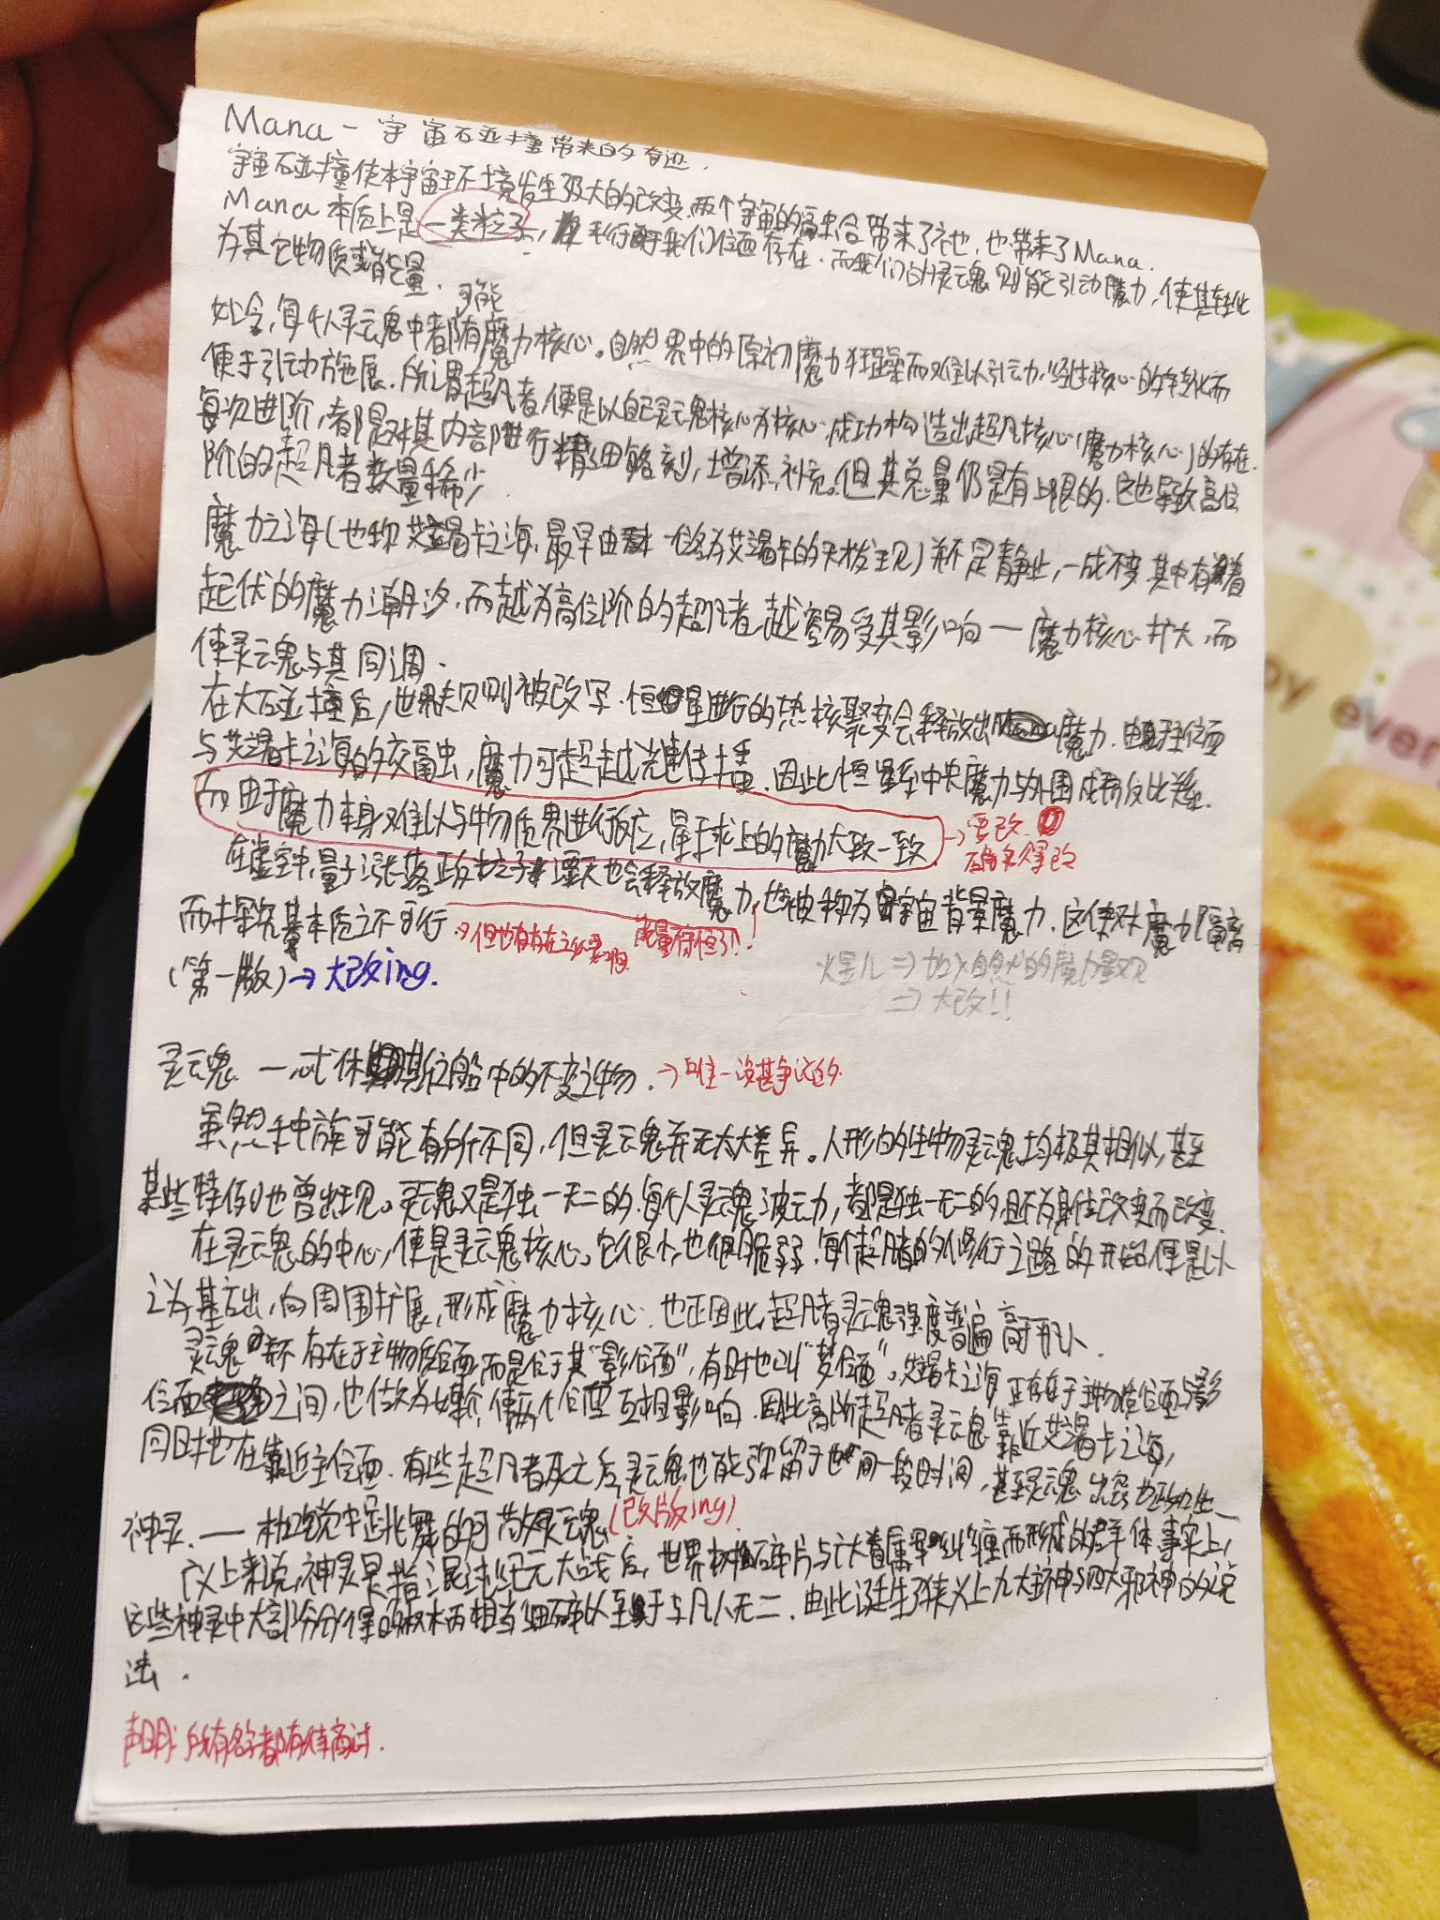 Mana — 宇宙碰撞带来的奇迹.
宇宙碰撞使本宇宙环境发生极大的改变.两个宇宙的耦合带来了祂,也带来了Mana.
Mana本质上是一类粒子,平行于我们位面存在.而我们的灵魂则能引动魔力,使其转化
为其它物质或能量.
可能
如今,每个人灵魂中都有魔力核心。自然界中的原初魔力狂躁而难以引动,经过核心的转化而
便于引动施展.所谓超凡者,便是以自己灵魂核心为核心.成功构造出超凡核心(魔力核心)的存在.
每次进阶,都是对其内部进行精细雕刻,增添,补充。但其总量仍是有上限的.这也导致高位
阶的超凡者数量稀少.
魔力之海(也称艾瑞卡之海,最早由一位名为艾瑞卡的天才发现)并不是静止,一成不变.其中有着
起伏的魔力潮汐.而越为高位阶的超凡者越容易受其影响—魔力核心扩大,而
使灵魂与其同调.
在大碰撞后,世界规则被改写.恒星进行的热核聚变会释放出魔力.由物理位面
与艾瑞卡之海的交融,魔力可超越光速传播.因此恒星系中央魔力与外围成反比关系.
而由于魔力本身难以与物质界进行反应,星球上的魔力大致一致 → 要改.
在虚空中,量子涨落正反粒子湮灭也会释放魔力,也被称为宇宙背景魔力.这使对魔力隔离
而探究其本质之不可行 →但也有存在之必要啊 能量守恒了!!
(第一版)→大改ing.
⇒加入自然的魔力
⇒大改!!
灵魂 — 忒休斯位船中的不变之物. →唯一没甚争议的.
虽然种族可能有所不同,但灵魂并无太大差异。人形的生物灵魂均极其相似,甚至
某些特例也曾出现。灵魂又是独一无二的.每个人灵魂波动,都是独一无二的,且不为身体改变而改变.
在灵魂的中心,便是灵魂核心。它很小,也很脆弱.每个超凡者的修行之路的开始便是以
之为基础,向周围扩展,形成魔力核心.也正因此,超凡者灵魂强度普遍高于凡人.
灵魂并不存在于主物质位面,而是位于其“影位面”,有时也叫“梦位面”.艾瑞卡之海正存在于主物质位面与影
位面之间,也作为媒介,使两个位面互相影响.因此高阶超凡者灵魂靠近艾瑞卡之海,
同时也在靠近主位面.有些超凡者死之后灵魂也能弥留于世间一段时间,甚至灵魂出窍也
神灵. — 枷锁中跳舞的灵魂(改版ing)
广义上来说,神灵是指混沌纪元大战后,世界树碎片与亡者纠缠而形成的群体.事实上,
这些神灵中大部分分得的权柄相当细碎以至于与凡人无二.由此诞生了狭义上九大主神与四大邪神的说
法.
声明:所有名字都有待商讨.